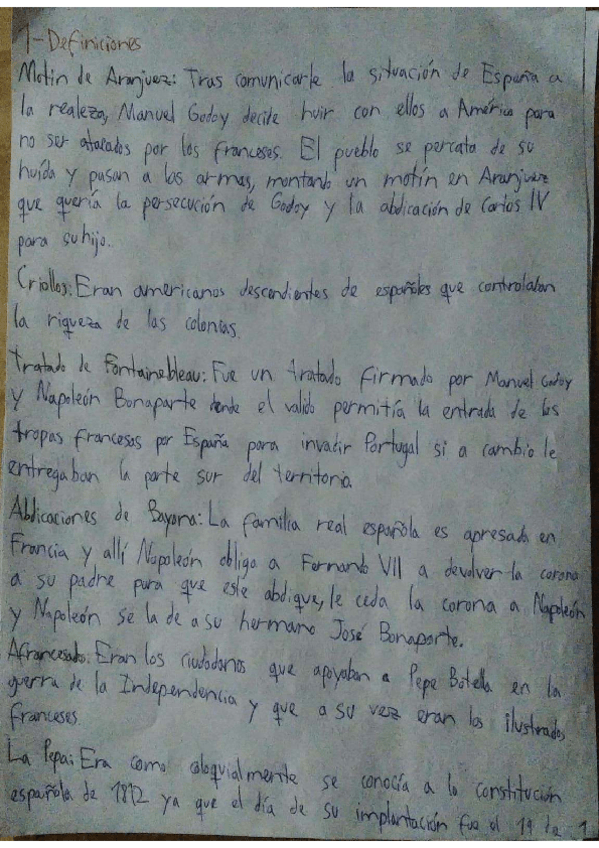 1-Definiciones
Motín de Aranjuez: Tras comunicarle la situación de España a
la realeza, Manuel Godoy decide huir con ellos a América para
no ser atacados por los franceses. El pueblo se percata de su
huída y pasan a las armas, montando un motín en Aranjuez
que quería la persecución de Godoy y la abdicación de Carlos IV
para su hijo.
Criollos: Eran americanos descendientes de españoles que controlaban
la riqueza de las colonias.
Tratado de Fontainebleau: Fue un tratado firmado por Manuel Godoy
y Napoleón Bonaparte donde el valido permitía la entrada de las
tropas francesas por España para invadir Portugal si a cambio le
entregaban la parte sur del territorio.
Abdicaciones de Bayona: La familia real española es apresada en
Francia y allí Napoleón obliga a Fernando VII a devolver la corona
a su padre para que este abdique, le ceda la corona a Napoleón
y Napoleón se la de a su hermano José Bonaparte.
Afrancesados: Eran los ciudadanos que apoyaban a Pepe Botella en la
guerra de la Independencia y que a su vez eran los ilustrados
franceses
La Pepa: Era como coloquialmente se conocía a la constitución
española de 1812 ya que el día de su implantación fue el 19 de